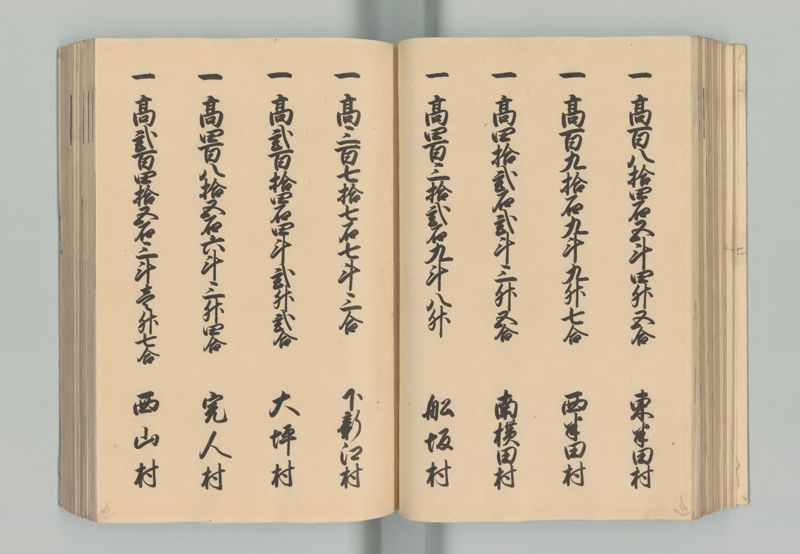 一 高百八拾四石五斗四升五合 東半田村
一 高百九拾石九斗九升七合 西半田村
一 高四拾弐石弐斗三升五合 南横田村
一 高四百三拾弐石九斗八升 船坂村
一 高三百七拾七石七斗三合 下新江村
一 高弐百拾四石四斗弐升弐合 大坪村
一 高四百八拾五石六斗三升四合 完人村
一 高弐百四拾五石三斗壱升七合 西山村